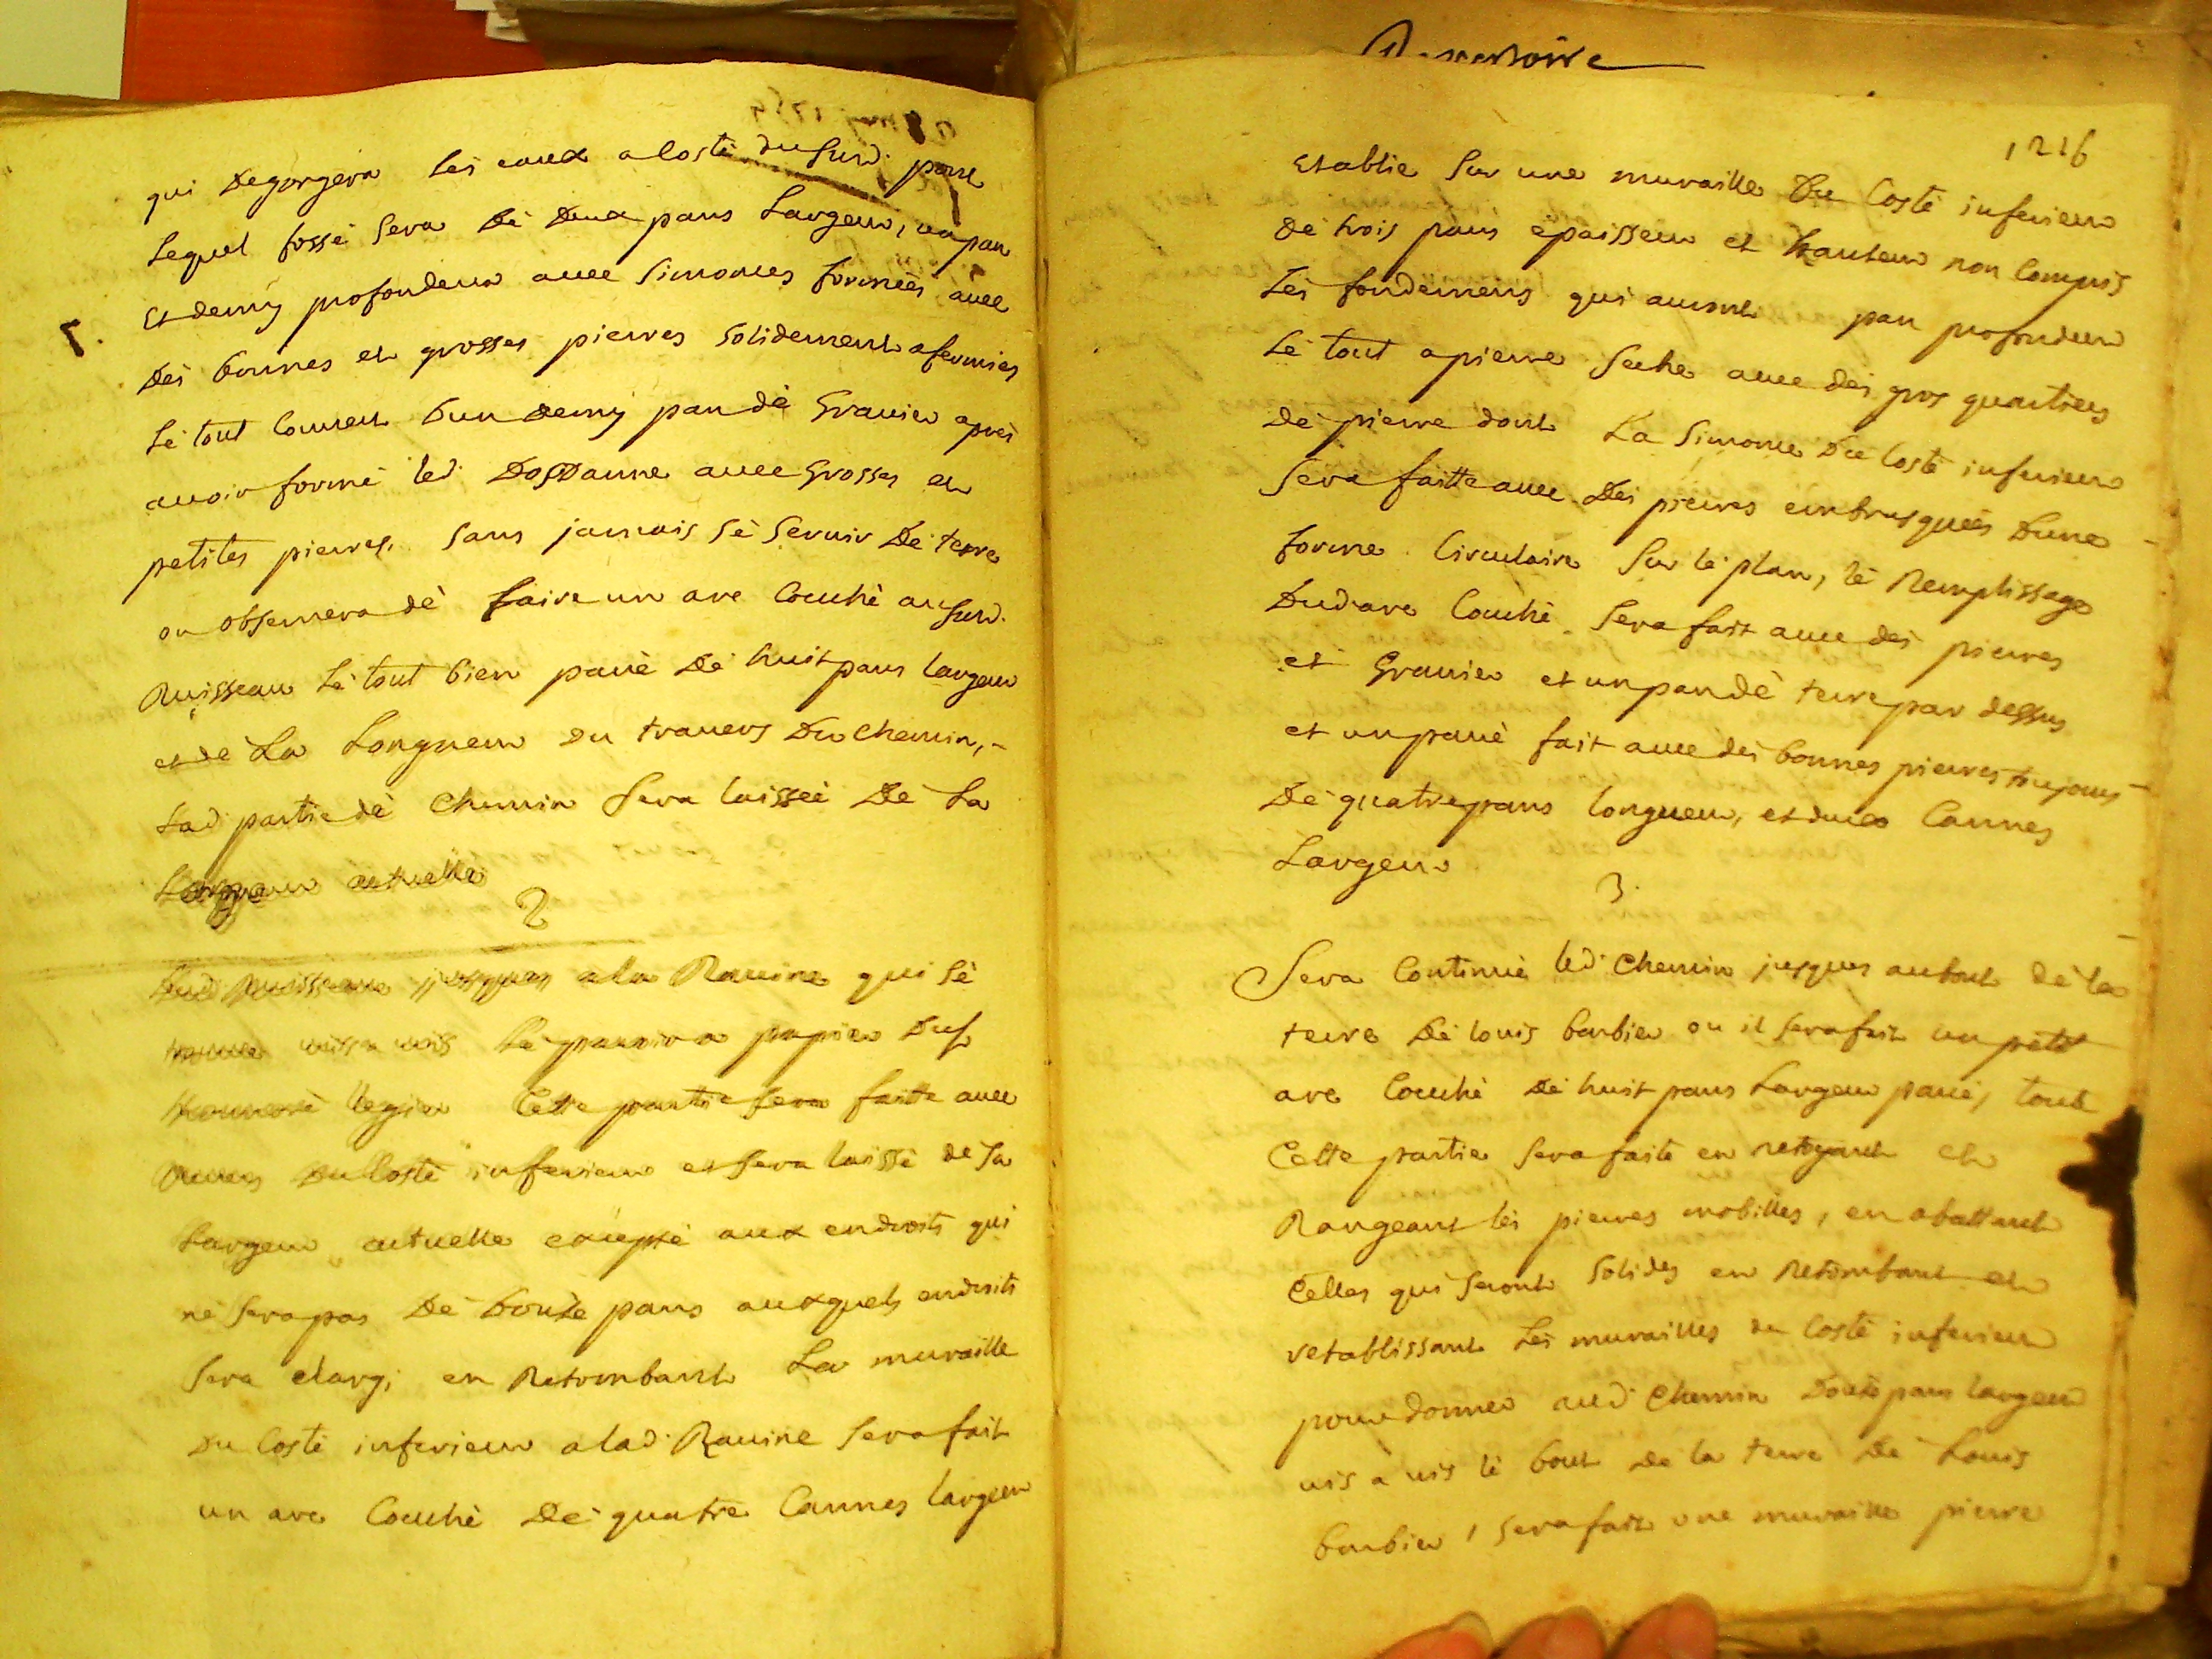 qui Degorgera les eaux a Costé dususd. pont
Lequel fossé Sera Dé Deux pans Largeur, un pan
et demy profondeur avec Simoulles formées avec
Des bonnes et grosses pierres Solidement afermies
Lé tout Couvert Dun Demy pan dé Gravier aprés
avoir formé led. avec Grosses et
petites pierres, Sans jamais Sé Servir Dé terre
on observera dé faire un arc Couché ausud.
Ruisseau Lé tout bien pavé Dé huit pans largeur
et dé La Longueur du travers Du Chemin,
Lad. partie dé Chemin Sera laissée Dé La
Largeur actuelle
2
Dud Ruisseau jusques a la Ravine qui Sé
trouve vis a vis Lé a papier Du Sr
Cette partie Sera faitte avec
Du Costé inferieur et Sera laissé de Sa
Largeur actuelle exepté aux endroits qui
né Sera pas Dé Douze pans auxquels endroits
Sera elargi en Retombant La muraille
Du Costé inferieur a lad. Ravine Sera fait
un arc Couché Dé quatre Cannes largeur
Repertoire
1216
etablie Sur une muraille Du Costé inferieur
dé trois pans epaisseur et hauteur non Compris
Lés fondemens qui auront pan profondeur
Lé tout a pierre Seche avec dés gros quartiers
Dé pierre dont La Du Costé inferieur
Sera faitte avec Dés pierres embrusquées Dune
forme Circulaire Sur lé plan, lé Remplissage
Dud arc Couché Sera fait avec dés pierres
et Gravier et un pan dé terre par dessus
et un pavé fait avec dés bonnes pierres toujours
Dé quatre pans longueur, et deux Cannes
Largeur
3.
Sera Continué led. Chemin jusques au bout dé la
terre Dé louis barbier ou il Sera fait un petit
arc Couché Dé huit pans Largeur pavé, tout
Cette partie Sera faite en et
Rangeant lés pierres mobilles, en abattant
Celles qui Seront Solides en Retombant et
retablissant Lés murailles du Costé inferieur
pour donner aud. Chemin Douze pans largeur
vis a vis lé bout De la terre Dé Louis
barbier, Sera fait une muraille pierre